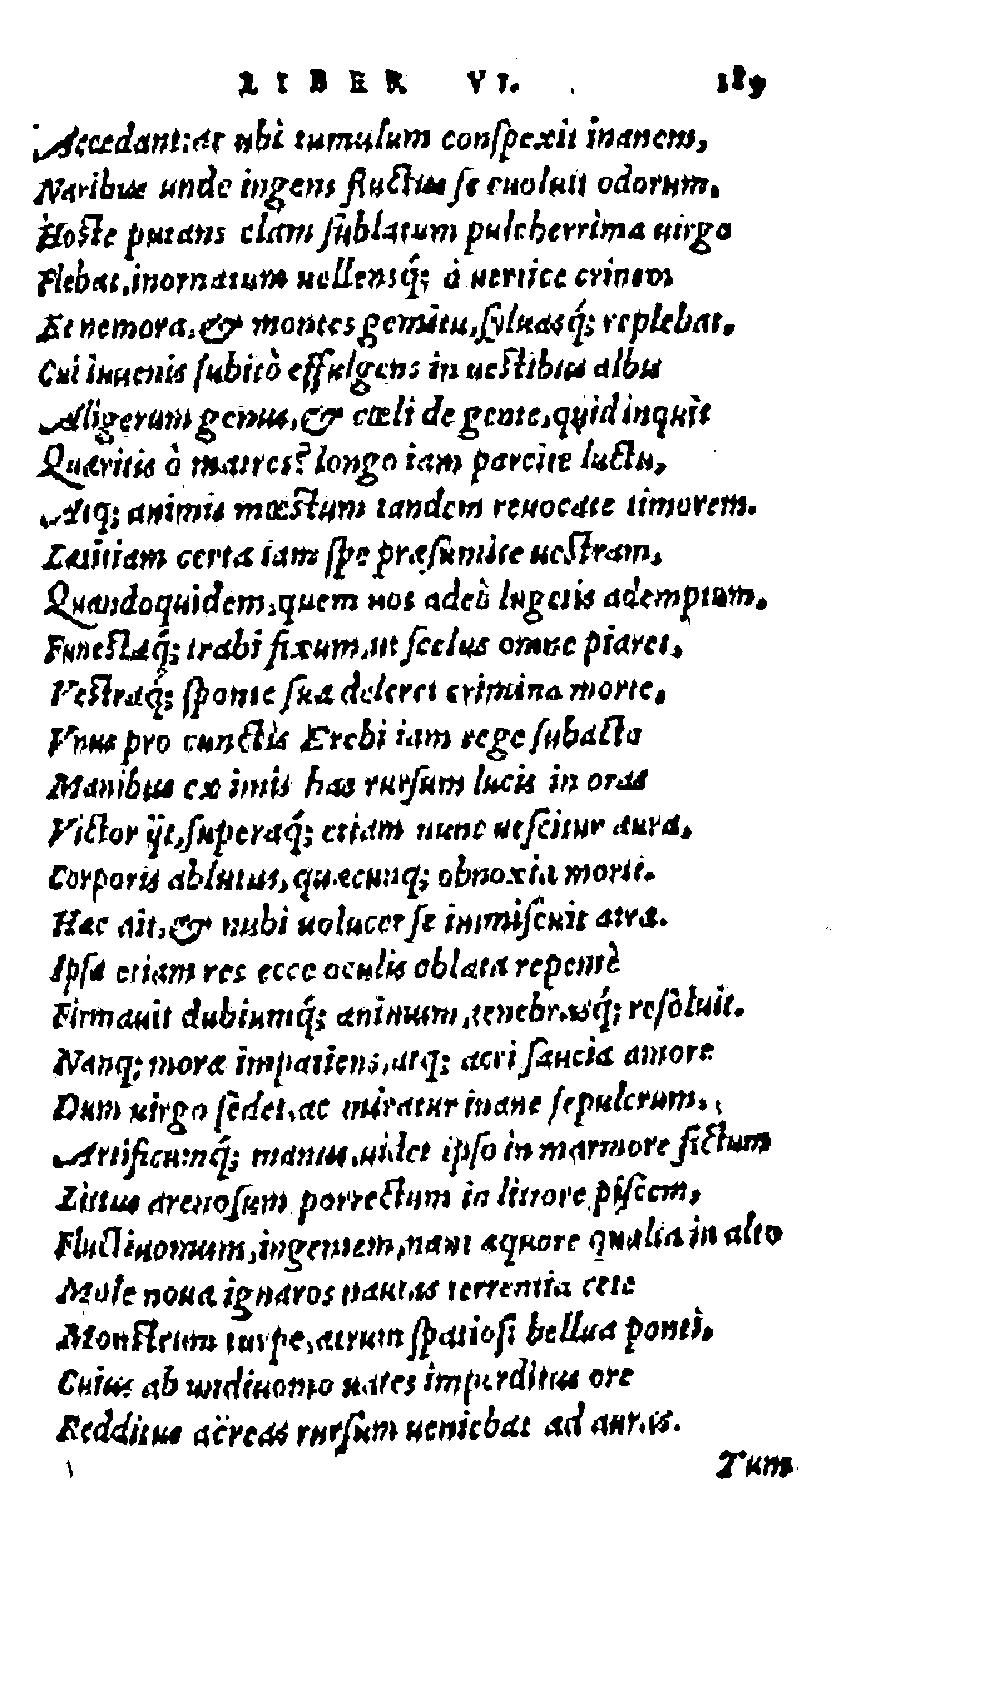 LIBER VI. 189
Accedant: at ubi tumulum conſpexit inanem,
Naribus unde ingens fluctus ſe euoluit odorum,
Hoſte putans clàm ſublatum pulcherrima uirgo
Flebat, inornatum uellensq́; à uertice crinem
Et nemora, & montes gemitu, ſyluasq́; replebat.
Cui iuuenis ſubitò effulgens in ueſtibus albis
Aligerum genus, & cœli de gente, quid inquit
Quæritis ô matres? longo iam parcite luctu,
Atq; animis mœſtum tandem reuocate timorem.
Lætitiam certa iam ſpe præſumite ueſtram,
Quandoquidem, quem uos adeò lugetis ademptum,
Funeſtaq́; trabi fixum, ut ſcelus omne piaret,
Veſtraq́; ſponte ſua deleret crimina morte,
Vnus pro cunctis Erebi iam rege ſubacto
Manibus ex imis has rurſum lucis in oras
Victor ijt, ſuperaq́; etiam nunc ueſcitur aura,
Corporis ablutus, quæcunq; obnoxia morti.
Hæc ait, & nubi uolucer ſe immiſcuit atræ.
Ipſa etiam res ecce oculis oblata repentè
Firmauit dubiumq́; animum, tenebrasq́; reſoluit.
Nanq; moræ impatiens, atq; acri ſaucia amore
Dum uirgo ſedet, ac miratur inane ſepulcrum,
Artificumq́; manus, uidet ipſo in marmore fictum
Littus arenoſum porrectum in littore piſcem,
Fluctiuomum, ingentem, nant æquore qualia in alto
Mole noua ignaros nautas terrentia cete
Monſtrum turpe, atrum ſpatioſi bellua ponti,
Cuius ab undiuomo uates imperditus ore
Redditus aëreas rurſum ueniebat ad auras.
Tum